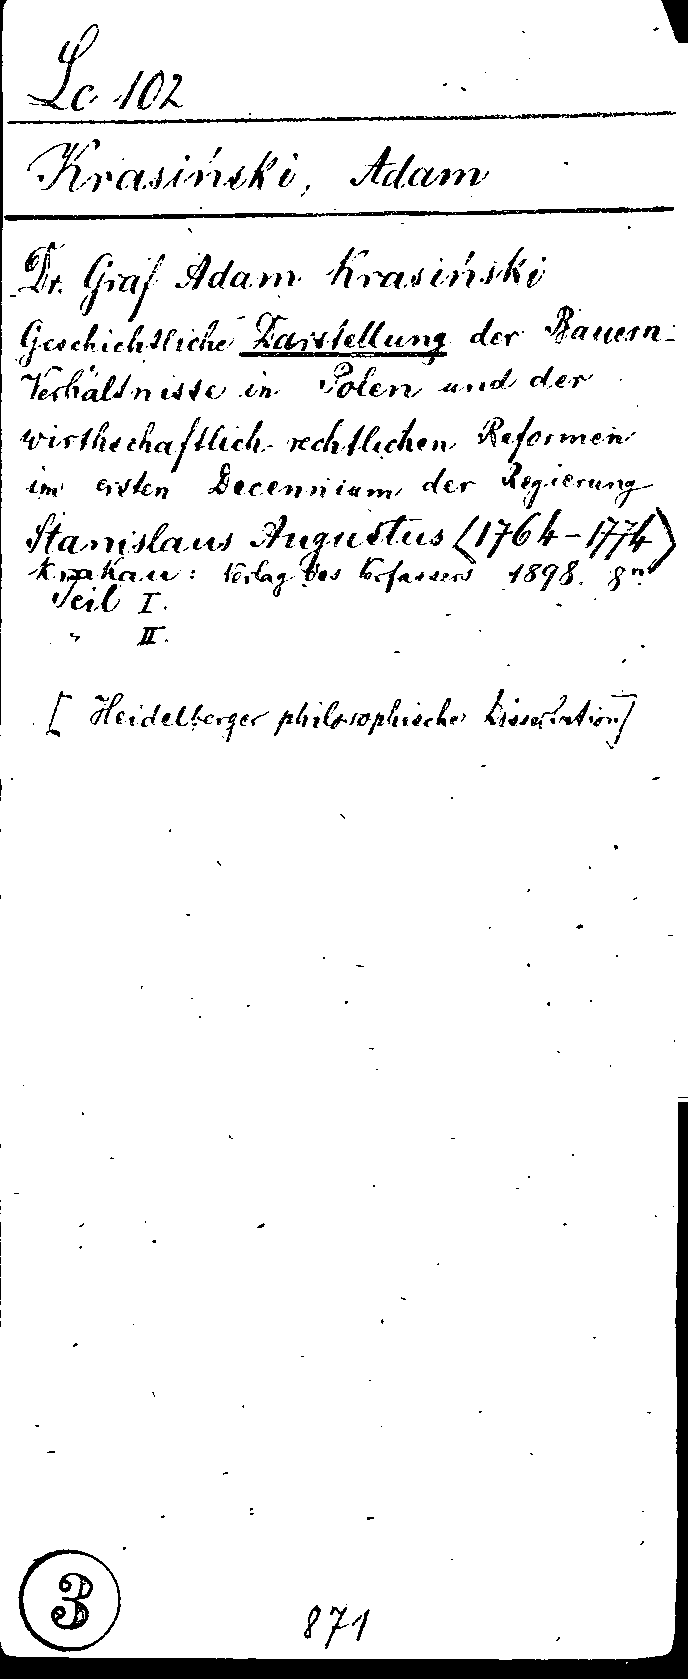 Lc 102
Krasiński, Adam
Dr. Graf Adam Krasiński
Geschichtliche Darstellung der Bauern-
Verhältnisse in Polen und der
wirthschaftlich-rechtlichen Reformen
im ersten Decennium der Regierung
Stanislaus Augustus (1764-1774)
Krakau: Verlag des Verfassers 1898. 8°
Teil I.
" II.
[Heidelberger philosophische Dissertation]
3
871